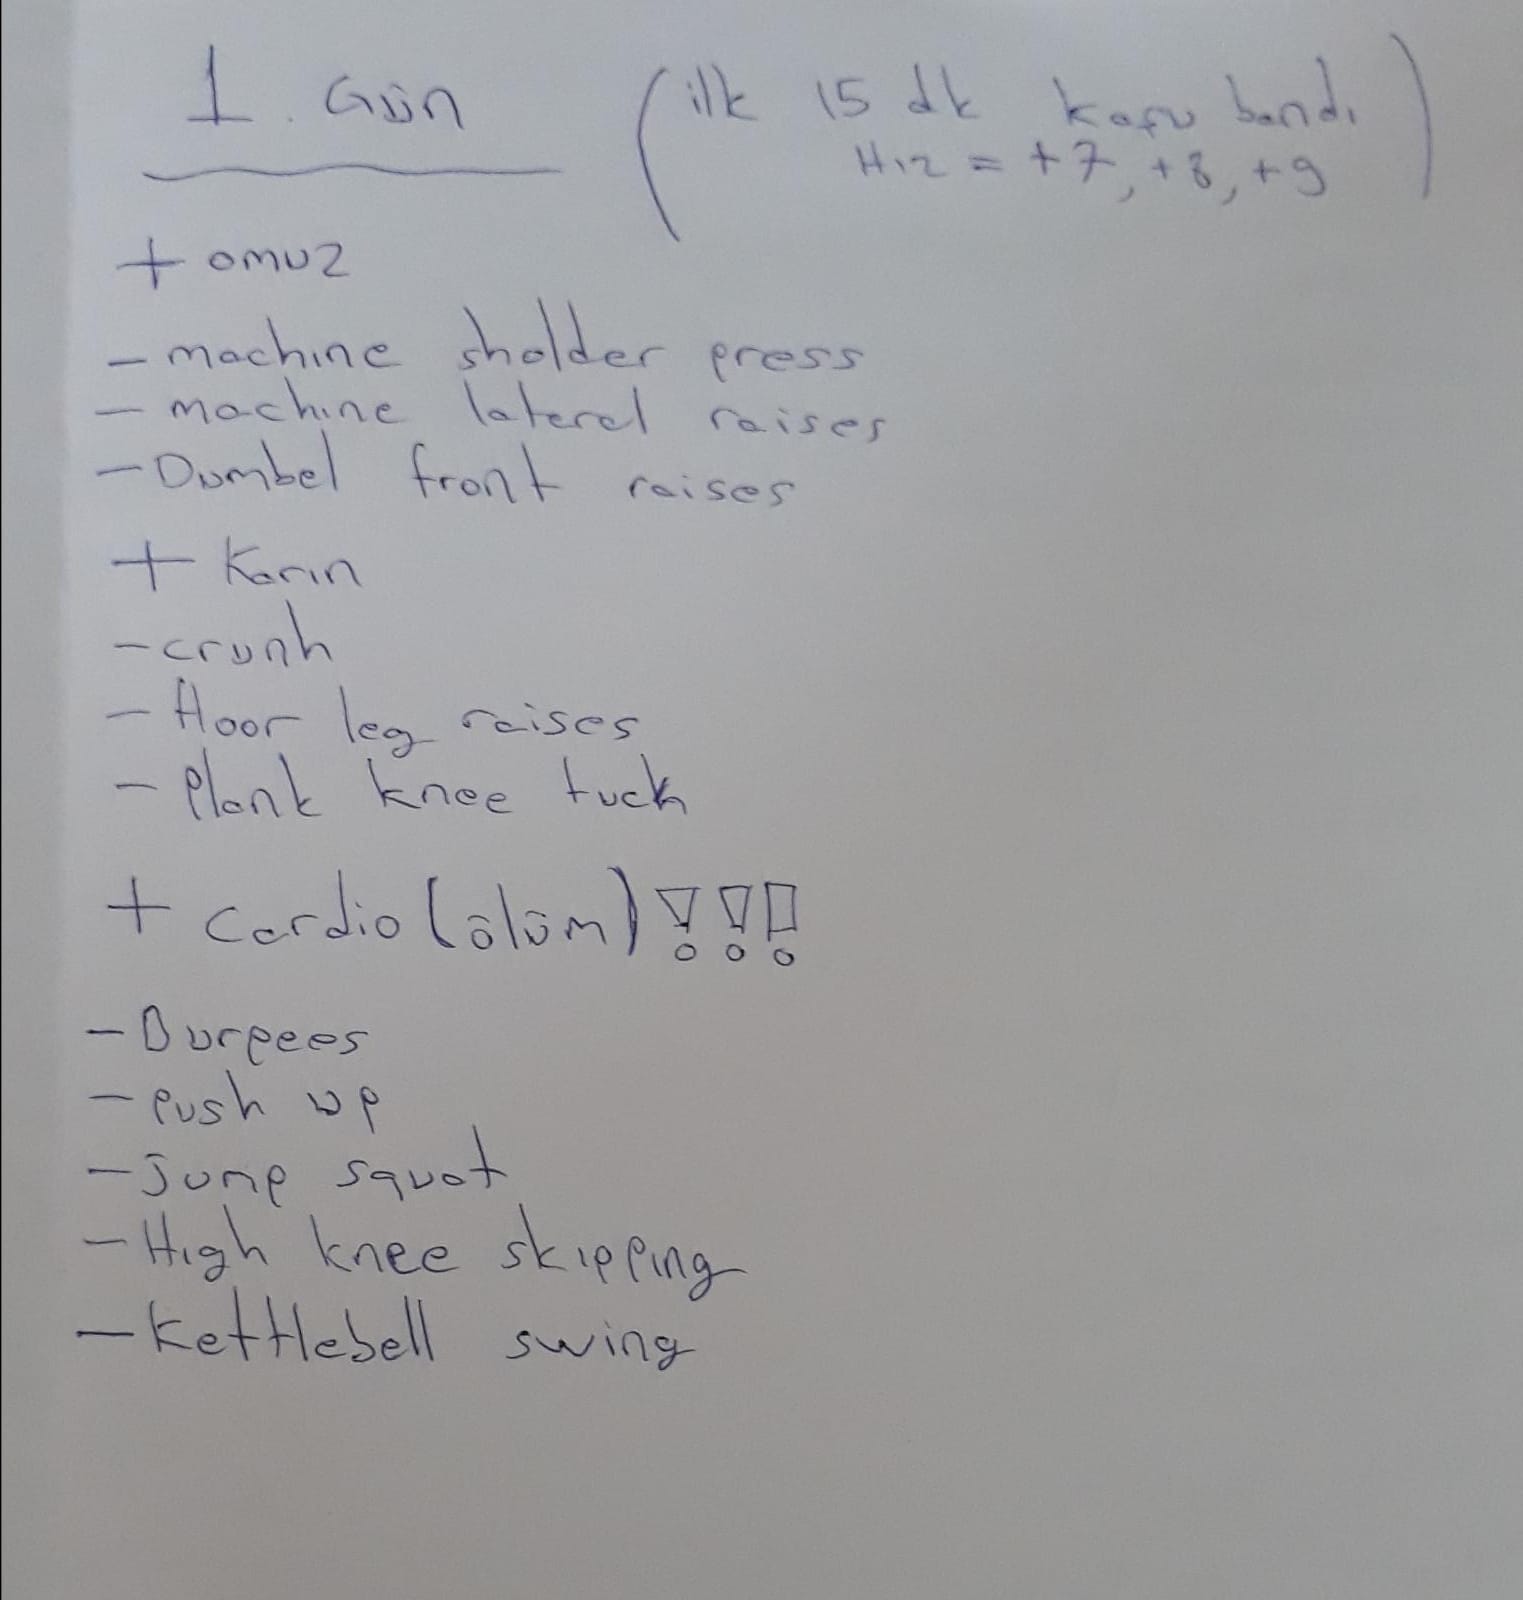 1. Gün (ilk 15 dk koşu bandı
Hız = +7, +8, +9)
+ omuz
- machine sholder press
- machine lateral raises
- Dumbel front raises
+ Karın
- crunh
- floor leg raises
- Plank knee tuck
+ Cardio (ölüm) !!!
- Burpees
- Push up
- Jump squat
- High knee skipping
- Kettlebell swing